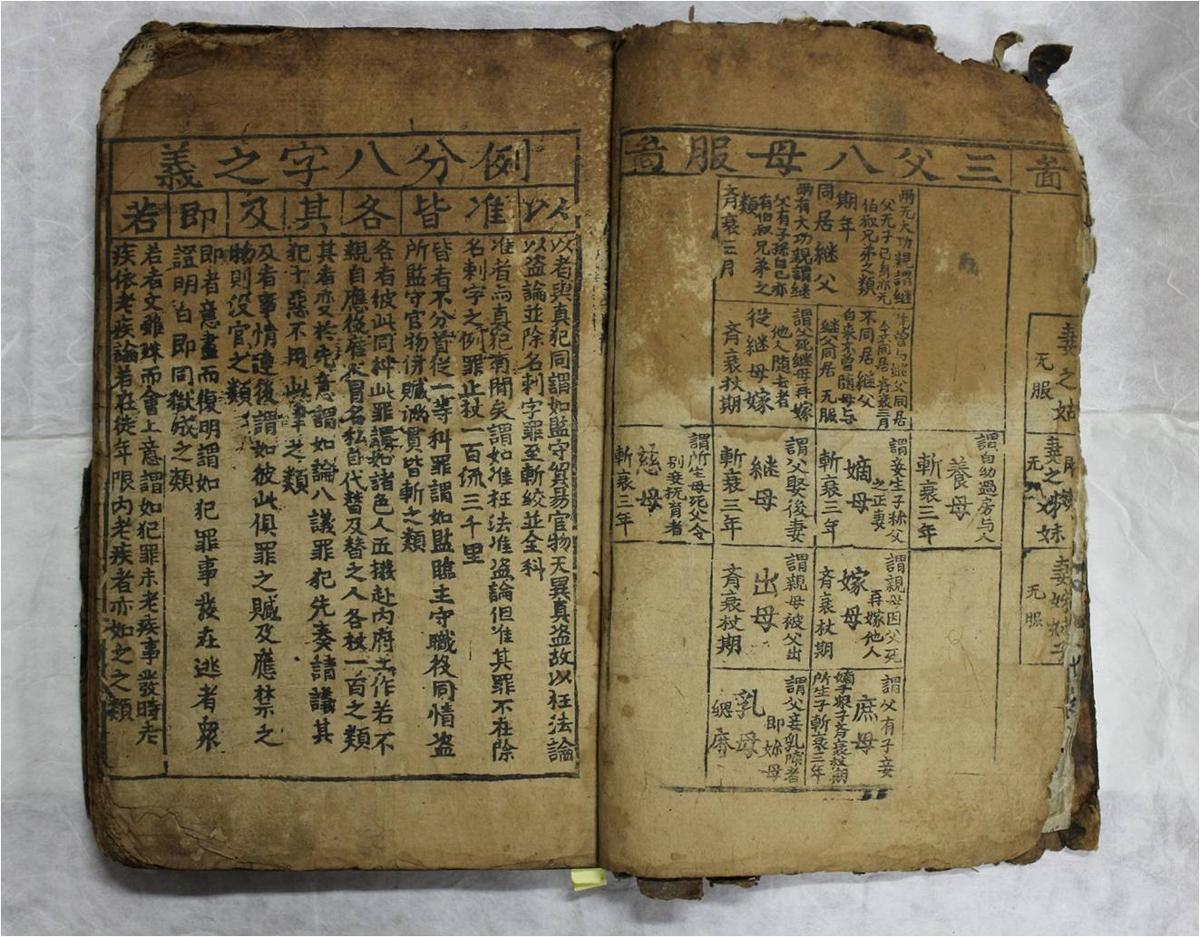 啚
妻之姑
无服
妻之姊妹
无服
无服
三父八母服啚
兩无大功親謂継
父无子己身亦无
伯叔兄弟之類
期年
同居継父
兩有大功親謂継
父有子孫自己亦
有伯叔兄弟之
類
斉衰三月
不同居継父
自来不曾随母与
継父同居 无服
謂父死継母再嫁
他人随去者
従継母嫁
斉衰杖期
謂自幼過房与人
養母
斬衰三年
謂妾生子称父
之正妻
嫡母
斬衰三年
謂父娶後妻
継母
斬衰三年
謂所生母死父令
別妾抚育者
慈母
斬衰三年
謂親母因父死
再嫁他人
嫁母
斉衰杖期
謂親母被父出
出母
斉衰杖期
謂父有子妾
庶母
嫡子衆子斉衰杖期
所生子斬衰三年
謂父妾乳哺者
即妳母
乳母
緦麻
例分八字之義
以 准 皆 各 其 及 即 若
以者與真犯同謂如監守貿易官物无異真盗故以枉法論
以盗論並除名刺字罪至斬絞並全科
准者與真犯有間矣謂如准枉法准盗論但准其罪不在除
名刺字之例罪止杖一百流三千里
皆者不分首從一等科罪謂如監臨主守職役同情盗
所監守官物併贓滿貫皆斬之類
各者彼此同科此罪謂如諸色人匠撥赴内府工作若不
親自應役雇人冒名私自代替及替之人各杖一百之類
其者变於先意謂如論八議罪犯先奏請議其
犯十惡不用此律之類
及者事情連後謂如彼此俱罪之贓及應禁之
物則没官之類
即者意盡而復明謂如犯罪事發在逃者衆
證明白即同獄成之類
若者文雖殊而會上意謂如犯罪未老疾事發時老
疾依老疾論若在徒年限内老疾者亦如之之類